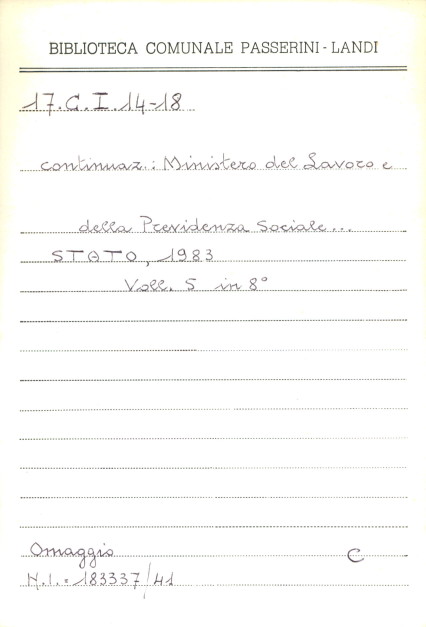 BIBLIOTECA COMUNALE PASSERINI - LANDI
17.C.I.14-18
continuaz.: Ministero del Lavoro e
della Previdenza Sociale...
STATO, 1983
Voll. 5 in 8°
Omaggio C
N.I. = 183337/41